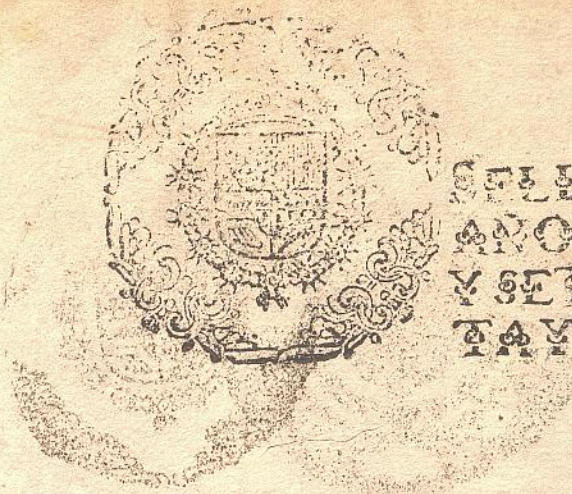 SELL
ANO
Y SET
TAY